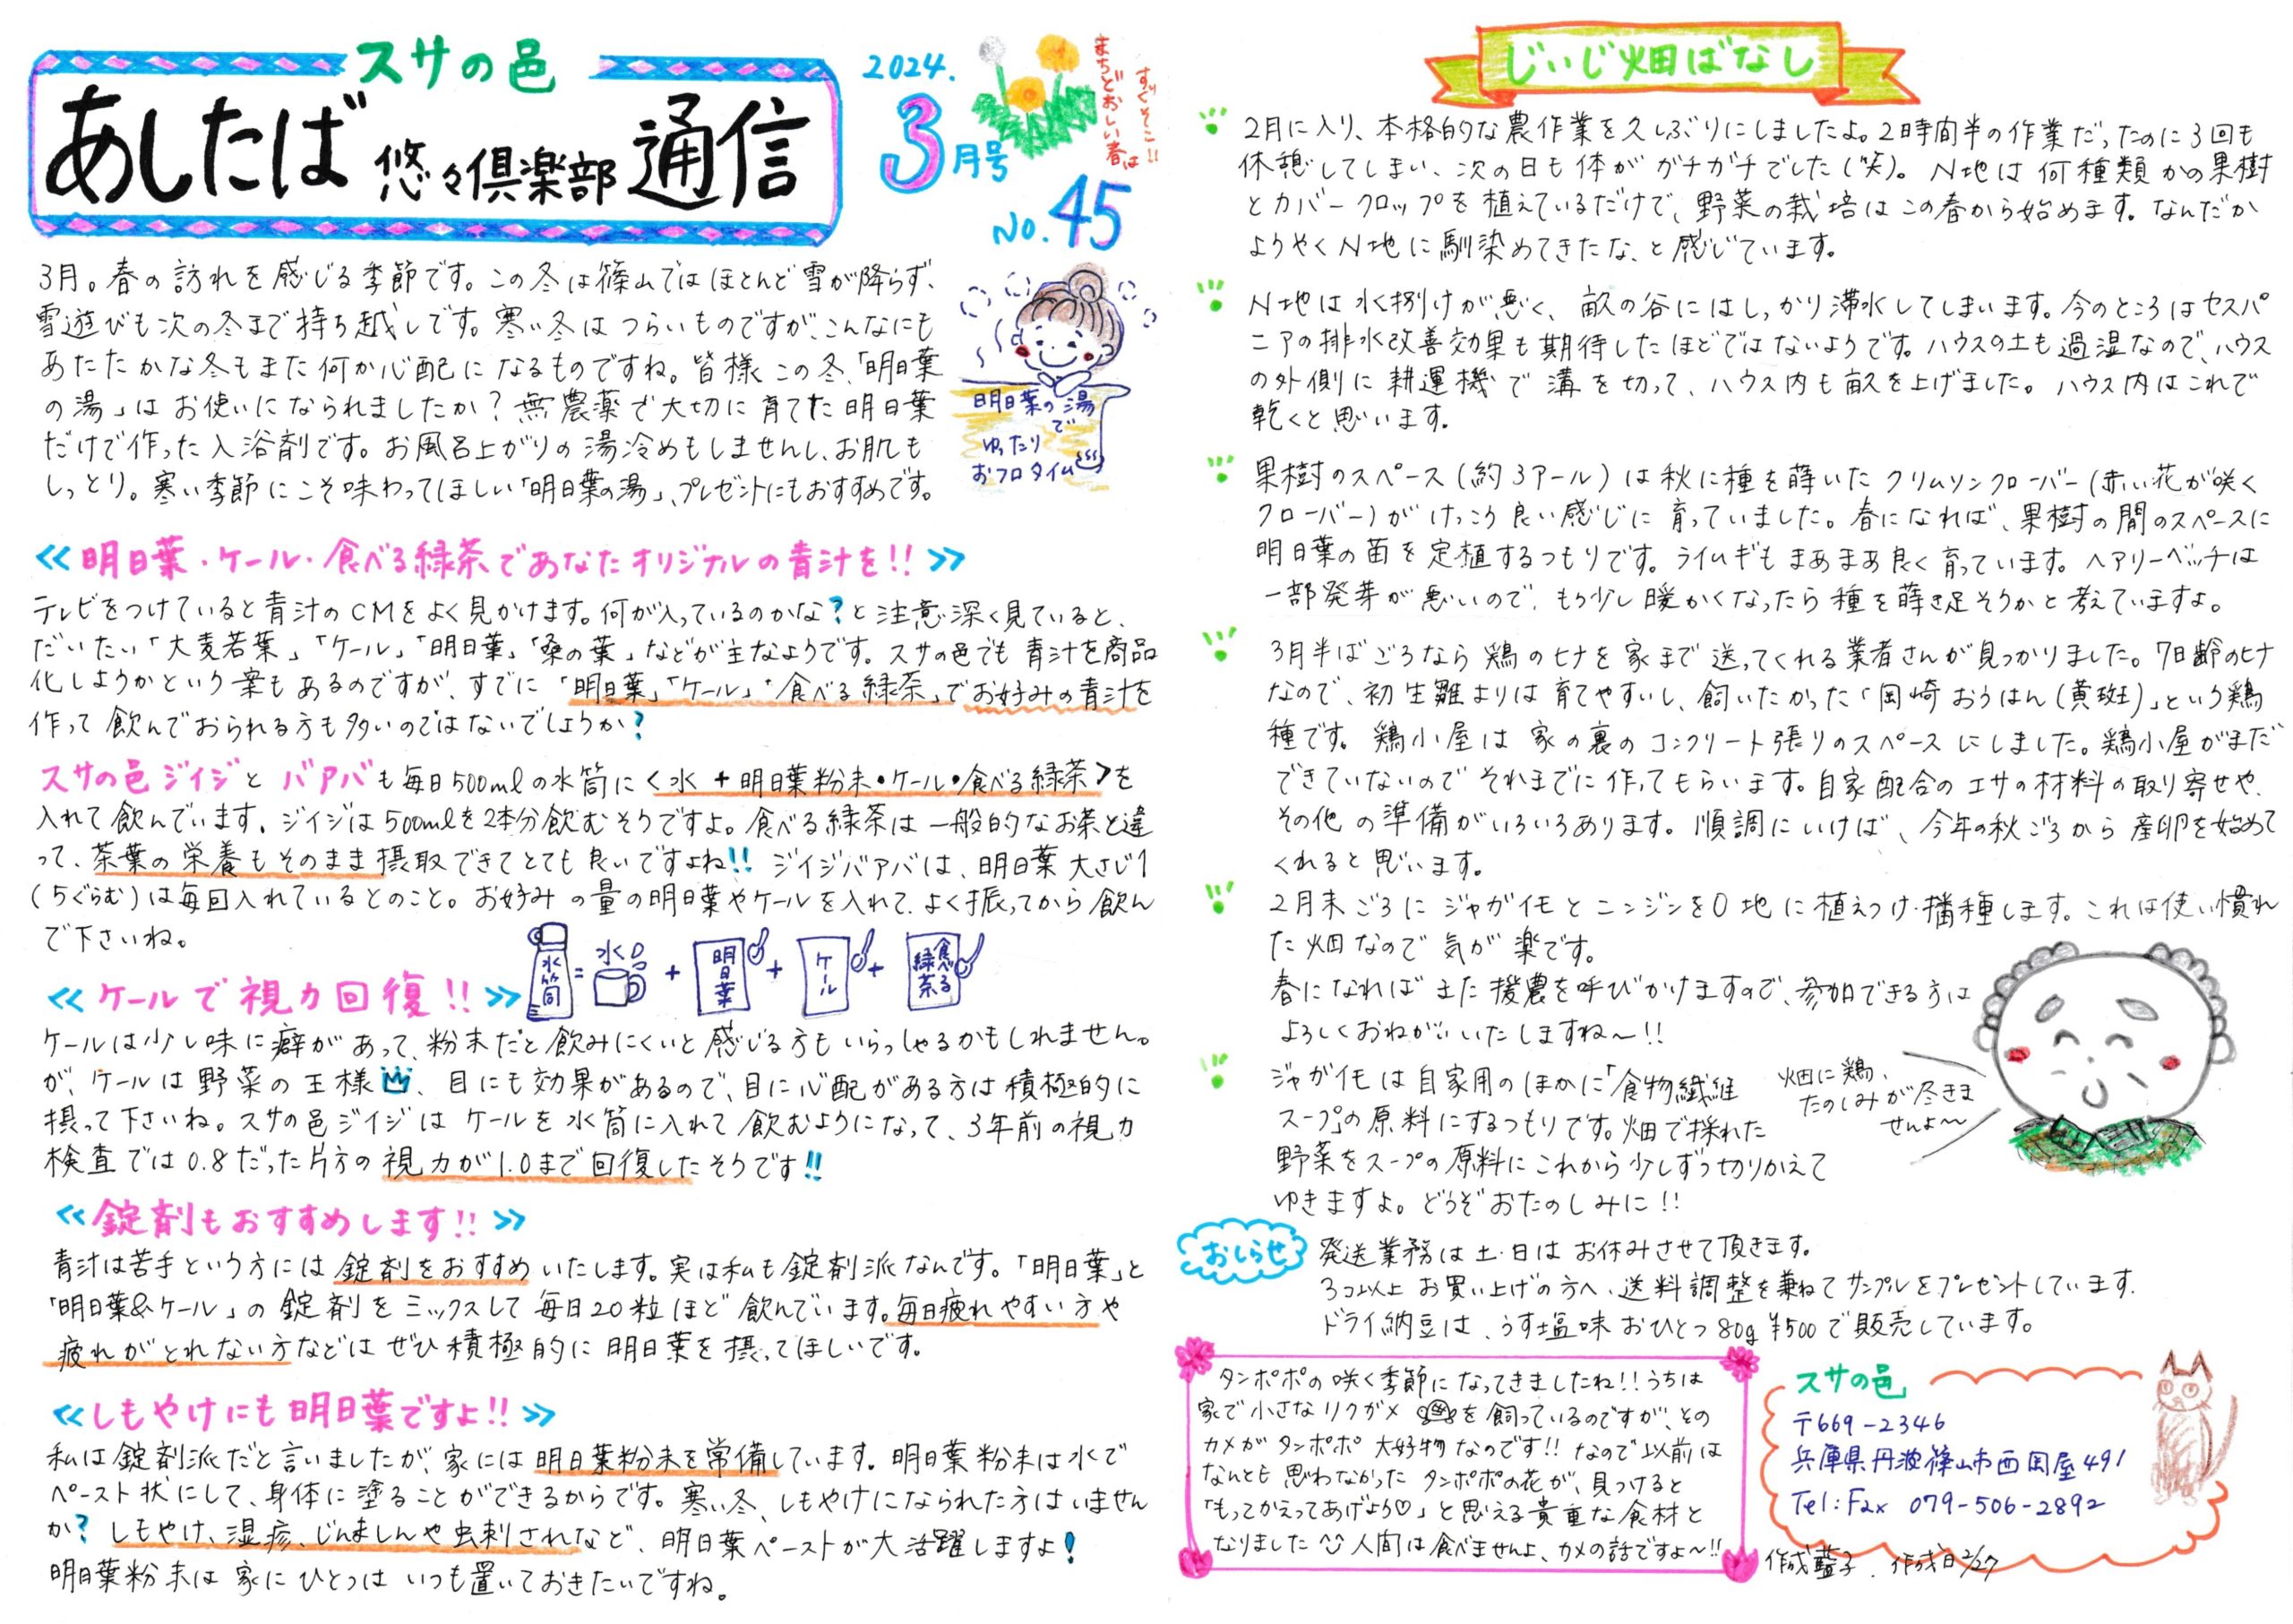 スサの邑
あしたば 悠々倶楽部 通信
2024.
3月号
No.45
まちどおしい春は
すぐそこ!!
3月。春の訪れを感じる季節です。この冬は篠山ではほとんど雪が降らず、
雪遊びも次の冬まで持ち越しです。寒い冬はつらいものですが、こんなにも
あたたかな冬もまた何か心配になるものですね。皆様この冬、「明日葉
の湯」はお使いになられましたか?無農薬で大切に育てた明日葉
だけで作った入浴剤です。お風呂上がりの湯冷めもしませんし、お肌も
しっとり。寒い季節にこそ味わってほしい「明日葉の湯」、プレゼントにもおすすめです。
明日葉の湯
で
ゆったり
おフロタイム
≪明日葉・ケール・食べる緑茶であなたオリジナルの青汁を!!≫
テレビをつけていると青汁のCMをよく見かけます。何が入っているのかな?と注意深く見ていると、
だいたい「大麦若葉」「ケール」「明日葉」「桑の葉」などが主なようです。スサの邑でも青汁を商品
化しようかという案もあるのですが、すでに「明日葉」「ケール」「食べる緑茶」でお好みの青汁を
作って飲んでおられる方も多いのではないでしょうか?
スサの邑ジイジとバアバも毎日500mlの水筒に<水+明日葉粉末・ケール・食べる緑茶>を
入れて飲んでいます。ジイジは500mlを2本分飲むそうですよ。食べる緑茶は一般的なお茶と違
って、茶葉の栄養もそのまま摂取できてとても良いですよね!!ジイジバアバは、明日葉大さじ1
(5ぐらむ)は毎回入れているとのこと。お好みの量の明日葉やケールを入れて、よく振ってから飲ん
で下さいね。
水筒=水+明日葉+ケール+食べる緑茶
≪ケールで視力回復!!≫
ケールは少し味に癖があって、粉末だと飲みにくいと感じる方もいらっしゃるかもしれません。
が、ケールは野菜の王様、目にも効果があるので、目に心配がある方は積極的に
摂って下さいね。スサの邑ジイジはケールを水筒に入れて飲むようになって、3年前の視力
検査では0.8だった片方の視力が1.0まで回復したそうです!!
≪錠剤もおすすめします!!≫
青汁は苦手という方には錠剤をおすすめいたします。実は私も錠剤派なんです。「明日葉」と
「明日葉&ケール」の錠剤をミックスして毎日20粒ほど飲んでいます。毎日疲れやすい方や
疲れがとれない方などはぜひ積極的に明日葉を摂ってほしいです。
≪しもやけにも明日葉ですよ!!≫
私は錠剤派だと言いましたが、家には明日葉粉末を常備しています。明日葉粉末は水で
ペースト状にして、身体に塗ることができるからです。寒い冬、しもやけになられた方はいません
か?しもやけ、湿疹、じんましんや虫刺されなど、明日葉ペーストが大活躍しますよ!
明日葉粉末は家にひとつはいつも置いておきたいですね。
じいじ畑ばなし
2月に入り、本格的な農作業を久しぶりにしましたよ。2時間半の作業だったのに3回も
休憩してしまい、次の日も体がガチガチでした(笑)。N地は何種類かの果樹
とカバークロップを植えているだけで、野菜の栽培はこの春から始めます。なんだか
ようやくN地に馴染めてきたな、と感じています。
N地は水捌けが悪く、畝の谷にはしっかり滞水してしまいます。今のところはセスバ
ニアの排水改善効果も期待したほどではないようです。ハウスの土も過湿なので、ハウス
の外側に耕運機で溝を切って、ハウス内も畝を上げました。ハウス内はこれで
乾くと思います。
果樹のスペース(約3アール)は秋に種を蒔いたクリムソンクローバー(赤い花が咲く
クローバー)がけっこう良い感じに育っていました。春になれば、果樹の間のスペースに
明日葉の苗を定植するつもりです。ライムギもまあまあ良く育っています。ヘアリーベッチは
一部発芽が悪いので、もう少し暖かくなったら種を蒔き足そうかと考えていますよ。
3月半ばごろなら鶏のヒナを家まで送ってくれる業者さんが見つかりました。7日齢のヒナ
なので、初生雛よりは育てやすいし、飼いたかった「岡崎おうはん(黄斑)」という鶏
種です。鶏小屋は家の裏のコンクリート張りのスペースにしました。鶏小屋がまだ
できていないのでそれまでに作ってもらいます。自家配合のエサの材料の取り寄せや、
その他の準備がいろいろあります。順調にいけば、今年の秋ごろから産卵を始めて
くれると思います。
2月末ごろにジャガイモとニンジンをO地に植えつけ・播種します。これは使い慣れ
た畑なので気が楽です。
春になればまた援農を呼びかけますので、参加できる方は
よろしくおねがいいたしますね〜!!
ジャガイモは自家用のほかに「食物繊維
スープ」の原料にするつもりです。畑で採れた
野菜をスープの原料にこれから少しずつ切りかえて
ゆきますよ。どうぞおたのしみに!!
畑に鶏、
たのしみが尽きま
せんよ〜
おしらせ
発送業務は土・日はお休みさせて頂きます。
3コ以上お買い上げの方へ、送料調整を兼ねてサンプルをプレゼントしています。
ドライ納豆は、うす塩味おひとつ80g¥500で販売しています。
タンポポの咲く季節になってきましたね!!うちは
家で小さなリクガメを飼っているのですが、その
カメがタンポポ大好物なのです!!なので以前は
なんとも思わなかったタンポポの花が、見つけると
「もってかえってあげよう♡」と思える貴重な食材と
なりました 人間は食べませんよ、カメの話ですよ〜!!
スサの邑
〒669-2346
兵庫県丹波篠山市西岡屋491
Tel:Fax 079-506-2892
作成藍子. 作成日2/27